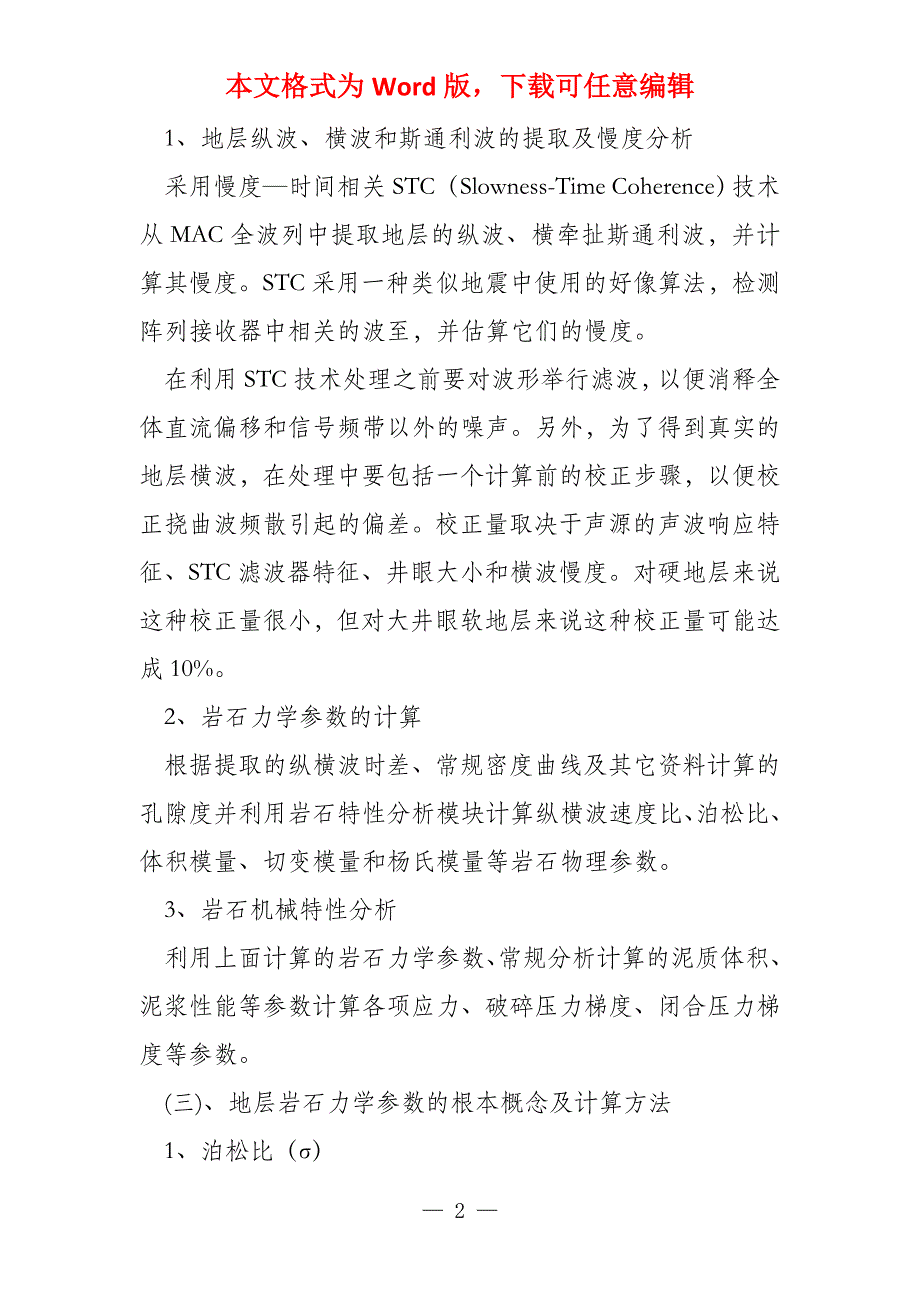 本文格式为 Word 版，下载可任意编辑
1、地层纵波、横波和斯通利波的提取及慢度分析
采用慢度—时间相关 STC（Slowness-Time Coherence）技术
从 MAC 全波列中提取地层的纵波、横牵扯斯通利波，并计
算其慢度。STC 采用一种类似地震中使用的好像算法，检测
阵列接收器中相关的波至，并估算它们的慢度。
在利用 STC 技术处理之前要对波形举行滤波，以便消释全
体直流偏移和信号频带以外的噪声。另外，为了得到真实的
地层横波，在处理中要包括一个计算前的校正步骤，以便校
正挠曲波频散引起的偏差。校正量取决于声源的声波响应特
征、STC 滤波器特征、井眼大小和横波慢度。对硬地层来说
这种校正量很小，但对大井眼软地层来说这种校正量可能达
成 10%。
2、岩石力学参数的计算
根据提取的纵横波时差、常规密度曲线及其它资料计算的
孔隙度并利用岩石特性分析模块计算纵横波速度比、泊松比、
体积模量、切变模量和杨氏模量等岩石物理参数。
3、岩石机械特性分析
利用上面计算的岩石力学参数、常规分析计算的泥质体积、
泥浆性能等参数计算各项应力、破碎压力梯度、闭合压力梯
度等参数。
(三)、地层岩石力学参数的根本概念及计算方法
1、泊松比（σ）
— 2 —